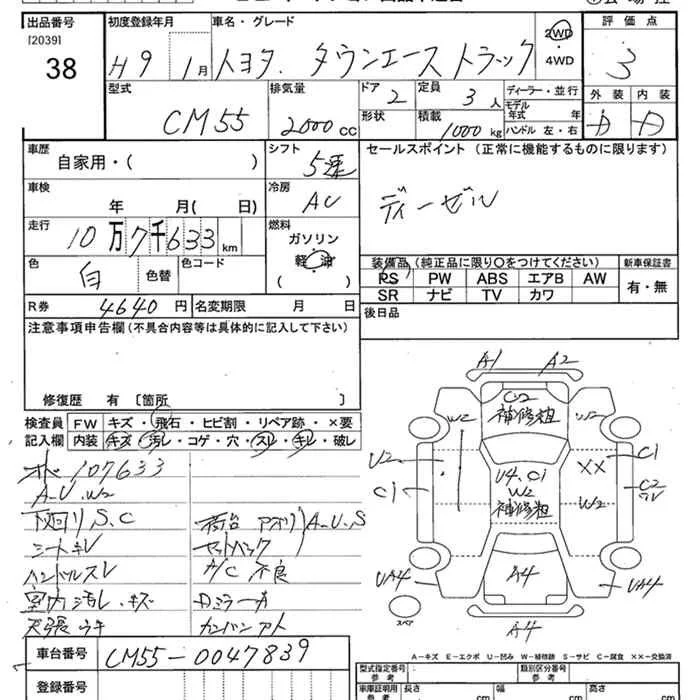 出品番号 初度登録年月 車名・グレード 評価点
[2039] 38 H9年 1月 トヨタ. タウンエーストラック 2WD・4WD 3
外装 内装
型式 排気量 ドア 2 定員 3人 ディーラー・並行
CM55 2000cc 形状 積載 1000kg モデル年式 年
ハンドル 左・右
車歴 シフト セールスポイント (正常に機能するものに限ります)
自家用・( ) 5速
車検 年 月( 日) 冷房 AC ディーゼル
走行 10万7千633km 燃料
ガソリン
軽油
( )
色 白 色替 色コード
装備品 (純正品に限り○をつけてください) 新車保証書
PS PW ABS エアB AW 有・無
SR ナビ TV カワ
R券 4640円 名変期限 月 日 後日品
注意事項申告欄(不具合内容等は具体的に記入して下さい)
修復歴 有 [箇所 ]
検査員 FW キズ・飛石・ヒビ割・リペア跡・×要
記入欄 内装 キズ・汚レ・コゲ・穴・スレ・キレ・破レ
107633
A-U.W2
下回リ S.C 荷台 アオリ A-U.S
シートキレ セットバック
ハンドルスレ A/C 不良
室内汚レ.キズ Dミラーカ
天張ウキ カンバンアト
車台番号 CM55-0047839
登録番号
A1 A2
C2
補修粗
W2
U2
C1
U4.C1
W2
補修粗
××
W2
C1
C2
UA4
A4
UA4
A4
スペア
A-キズ E-エクボ U-凹み W-補修跡 S-サビ C-腐食 ××-交換済
型式指定番号 参考 類別区分番号 参考
車庫証明用 参考 長さ cm 幅 cm 高さ cm